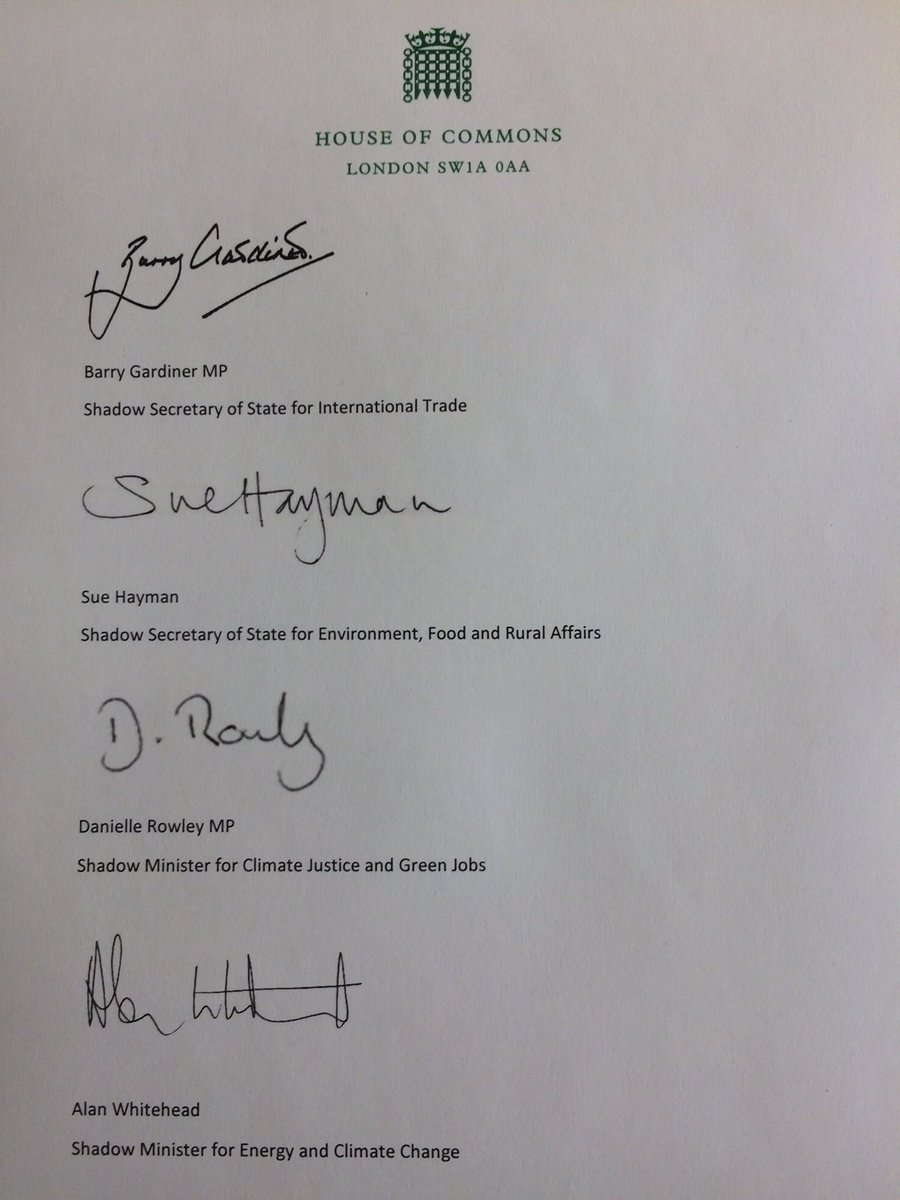 HOUSE OF COMMONS
LONDON SW1A 0AA
Barry Gardiner.
Barry Gardiner MP
Shadow Secretary of State for International Trade
Sue Hayman
Sue Hayman
Shadow Secretary of State for Environment, Food and Rural Affairs
D. Rowley
Danielle Rowley MP
Shadow Minister for Climate Justice and Green Jobs
Alan Whitehead
Alan Whitehead
Shadow Minister for Energy and Climate Change